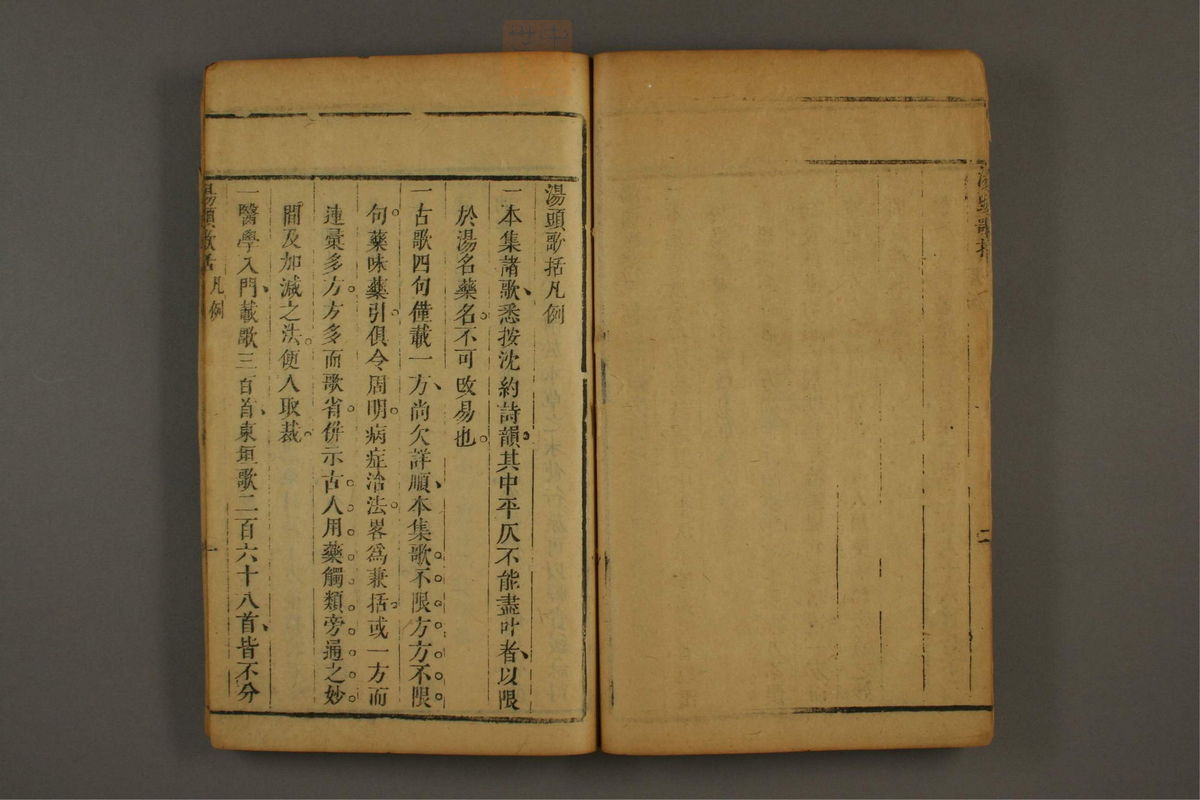 湯頭歌括
二
湯頭歌括凡例
一本集諸歌悉按沈約詩韻其中平仄不能盡叶者以限
於湯名藥名不可攺易也
一古歌四句僅載一方尚欠詳順本集歌不限方方不限
句藥味藥引俱令周明病症治法畧為兼括或一方而
連彙多方方多而歌省併示古人用藥觸類旁通之妙
間及加減之法便人取裁
一醫學入門載歌三百首東垣歌二百六十八首皆不分
湯頭歌括 凡例 一